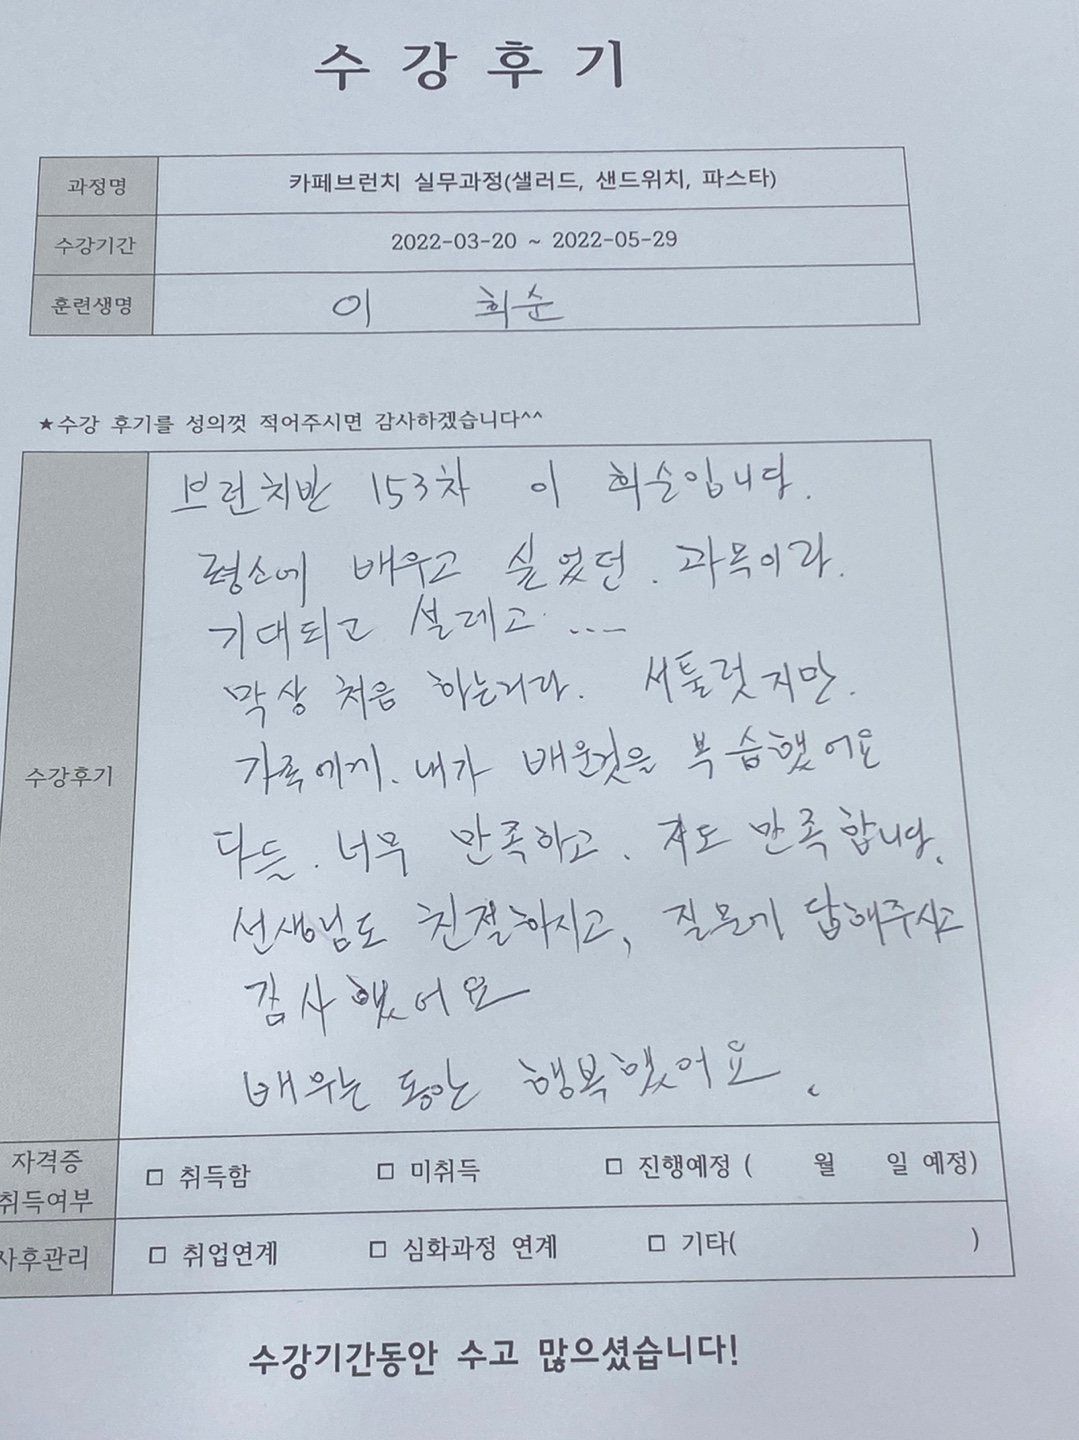 수강후기
과정명 카페브런치 실무과정(샐러드, 샌드위치, 파스타)
수강기간 2022-03-20 ~ 2022-05-29
훈련생명 이 희순
★수강 후기를 성의껏 적어주시면 감사하겠습니다^^
수강후기
브런치반 153차 이 희순입니다.
평소에 배우고 싶었던. 과목이라.
기대되고 설레고 ...
막상 처음 하는거라. 서툴럿지만.
가족에게. 내가 배운것을 복습했어요
다들. 너무 만족하고. 저도 만족합니다.
선생님도 친절하시고, 질문에 답해주시고
감사했어요
배우는 동안 행복했어요.
자격증
취득여부 □ 취득함 □ 미취득 □ 진행예정 ( 월 일 예정)
사후관리 □ 취업연계 □ 심화과정 연계 □ 기타( )
수강기간동안 수고 많으셨습니다!